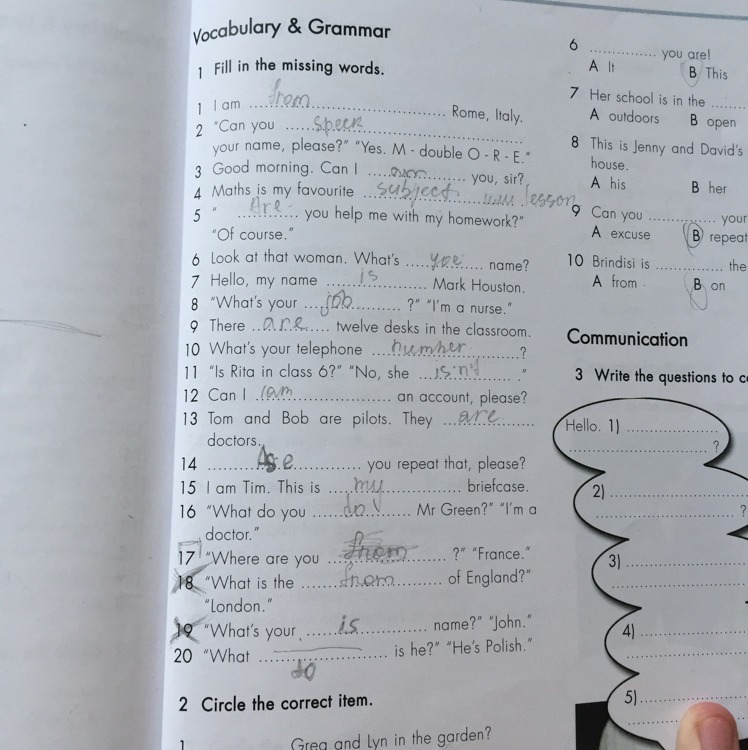 Vocabulary & Grammar
1 Fill in the missing words.
1 I am ... from ... Rome, Italy.
2 "Can you ... speek ...
your name, please?" "Yes. M - double O - R - E."
3 Good morning. Can I ... you, sir?
4 Maths is my favourite ... subject ... lesson
5 " ... Are ... you help me with my homework?"
"Of course."
6 Look at that woman. What's ... yoe ... name?
7 Hello, my name ... is ... Mark Houston.
8 "What's your ... job ... ?" "I'm a nurse."
9 There ... are ... twelve desks in the classroom.
10 What's your telephone ... number ... ?
11 "Is Rita in class 6?" "No, she ... isn't ... ."
12 Can I ... am ... an account, please?
13 Tom and Bob are pilots. They ... are ...
doctors.
14 ... you repeat that, please?
15 I am Tim. This is ... my ... briefcase.
16 "What do you ... do ... Mr Green?" "I'm a
doctor."
17 "Where are you ... from ... ?" "France."
18 "What is the ... from ... of England?"
"London."
19 "What's your ... is ... name?" "John."
20 "What ... is he?" "He's Polish."
do
2 Circle the correct item.
1 ... Greg and Lyn in the garden?
6 ... you are!
A It B This
7 Her school is in the ...
A outdoors B open
8 This is Jenny and David's
house.
A his B her
9 Can you ... your
A excuse B repeat
10 Brindisi is ... the
A from B on
Communication
3 Write the questions to c
Hello. 1) ...
... ?
2) ...
... ?
3) ...
4) ...
5) ...